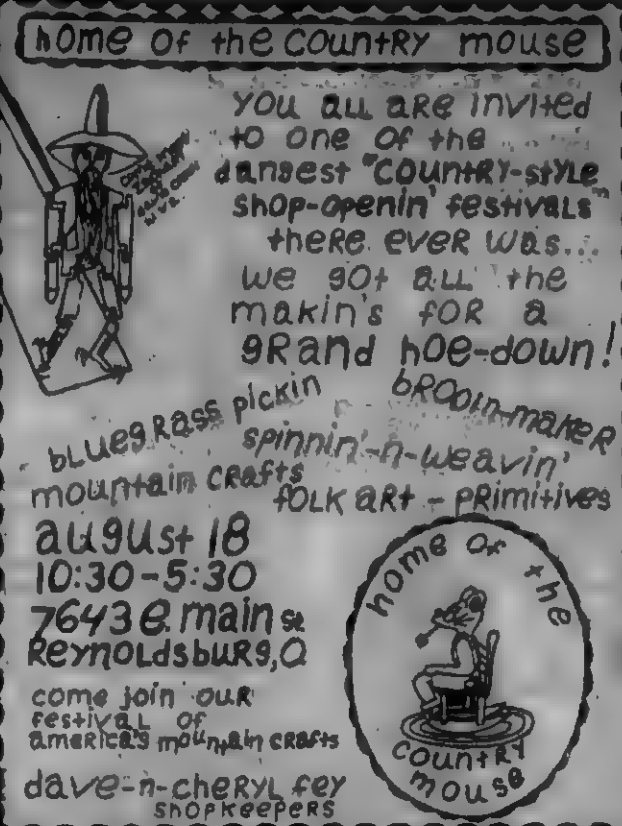 home of the country mouse
you all are invited
to one of the
dangest "country-style
shop-openin' festivals"
there ever was...
we got all the
makin's for a
grand hoe-down!
bluegrass pickin
broom-maker
spinnin'-n-weavin'
mountain crafts
folk art - primitives
august 18
10:30-5:30
7643 e. main st
Reynoldsburg, O
come join our
festival of
america's mountain crafts
dave-n-cheryl fey
shopkeepers
home of the
country
mouse